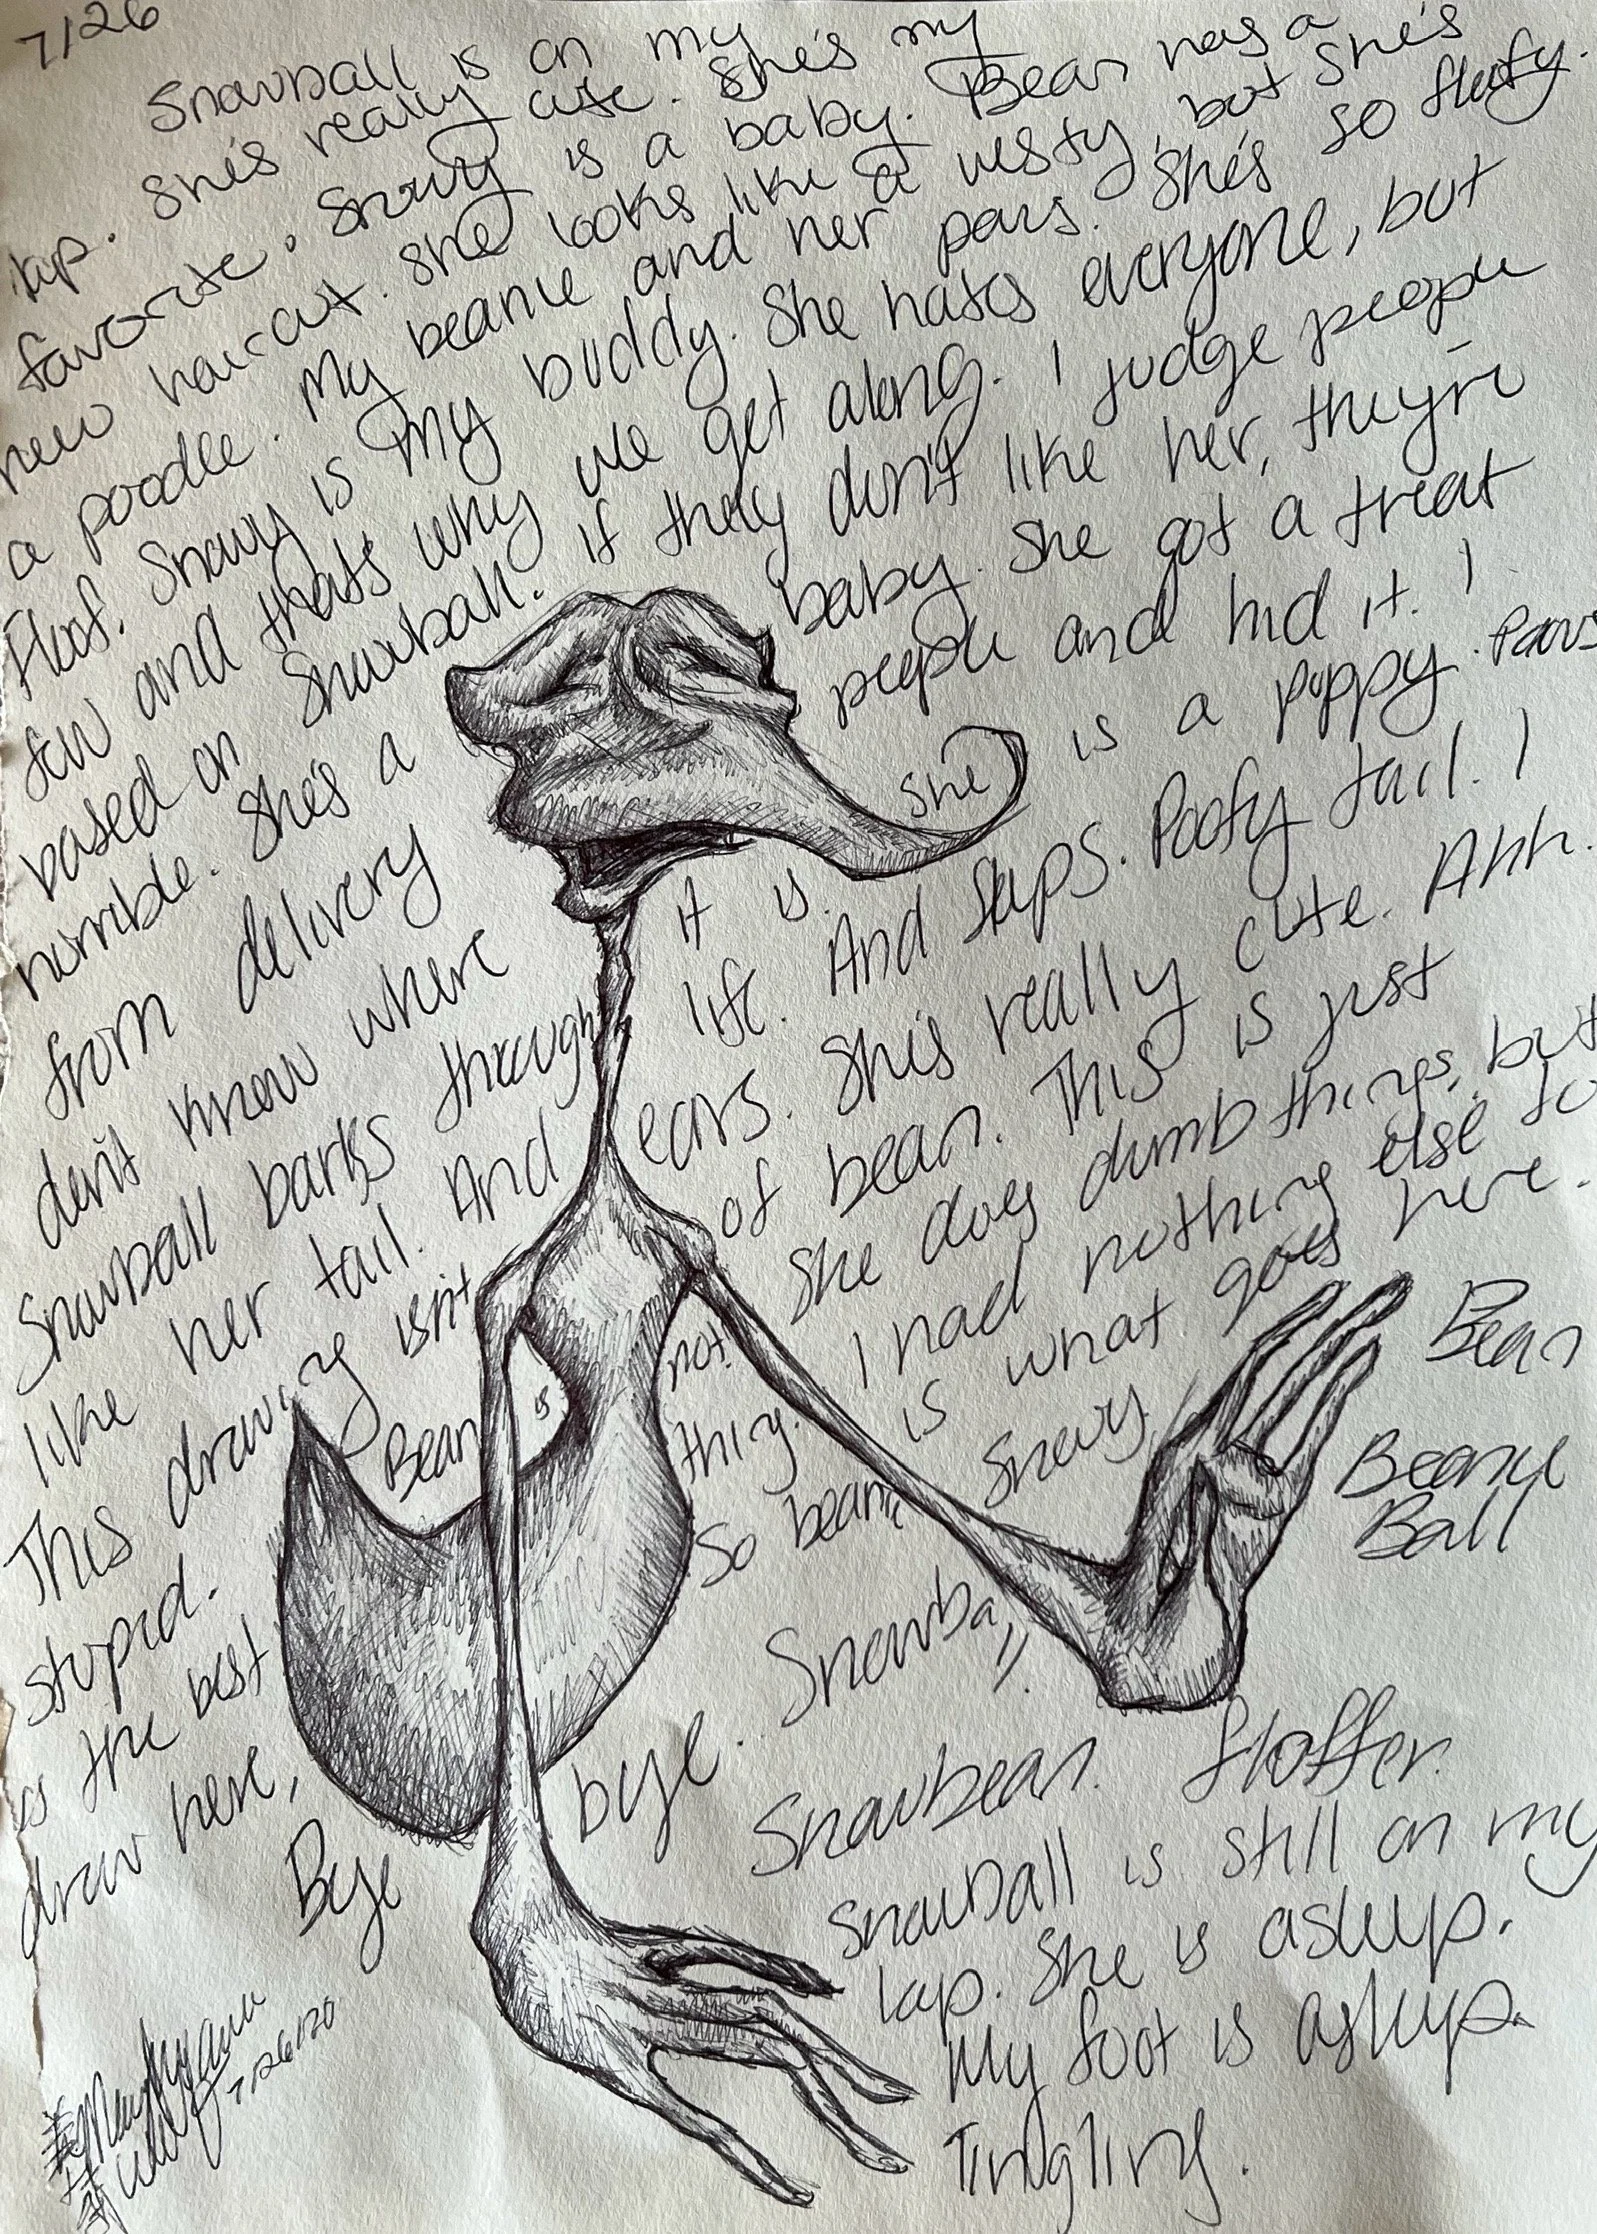 7/26
Snowball is on my
lap. She's really cute. She's my
favorite. Snowy is a baby. Bean has a
new haircut. She looks like a westy, but she's
a poodle. My beanie and her paws. She's so fluffy.
Floof. Snowy is my buddy. She hates everyone, but
few and thats why we get along. I judge people
based on Snowball. If they don't like her, they're
horrible. She's a baby. She got a treat
from delivery people and hid it. I
don't know where she is a puppy. Paws
Snowball barks through it is.
life. And sleeps. Poofy tail. I
like her tail. And ears. She's really cute. Ahh.
This drawing isn't of bean. This is just
stupid. Bean is not. She does dumb things, but
is the best thing. I had nothing else to
draw here, So bean is what goes here.
Bye bye. Snowy. Bean
Snowball. Beanie
Ball
Snowbean. floffer.
Snowball is still on my
lap. She is asleep.
My foot is asleep.
Tingling.
7/26/20